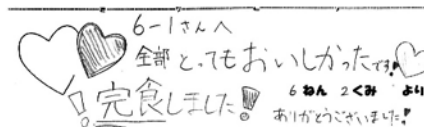 6-1さんへ
全部とってもおいしかったです!
!完食しました!
6ねん2くみより
ありがとうございました!